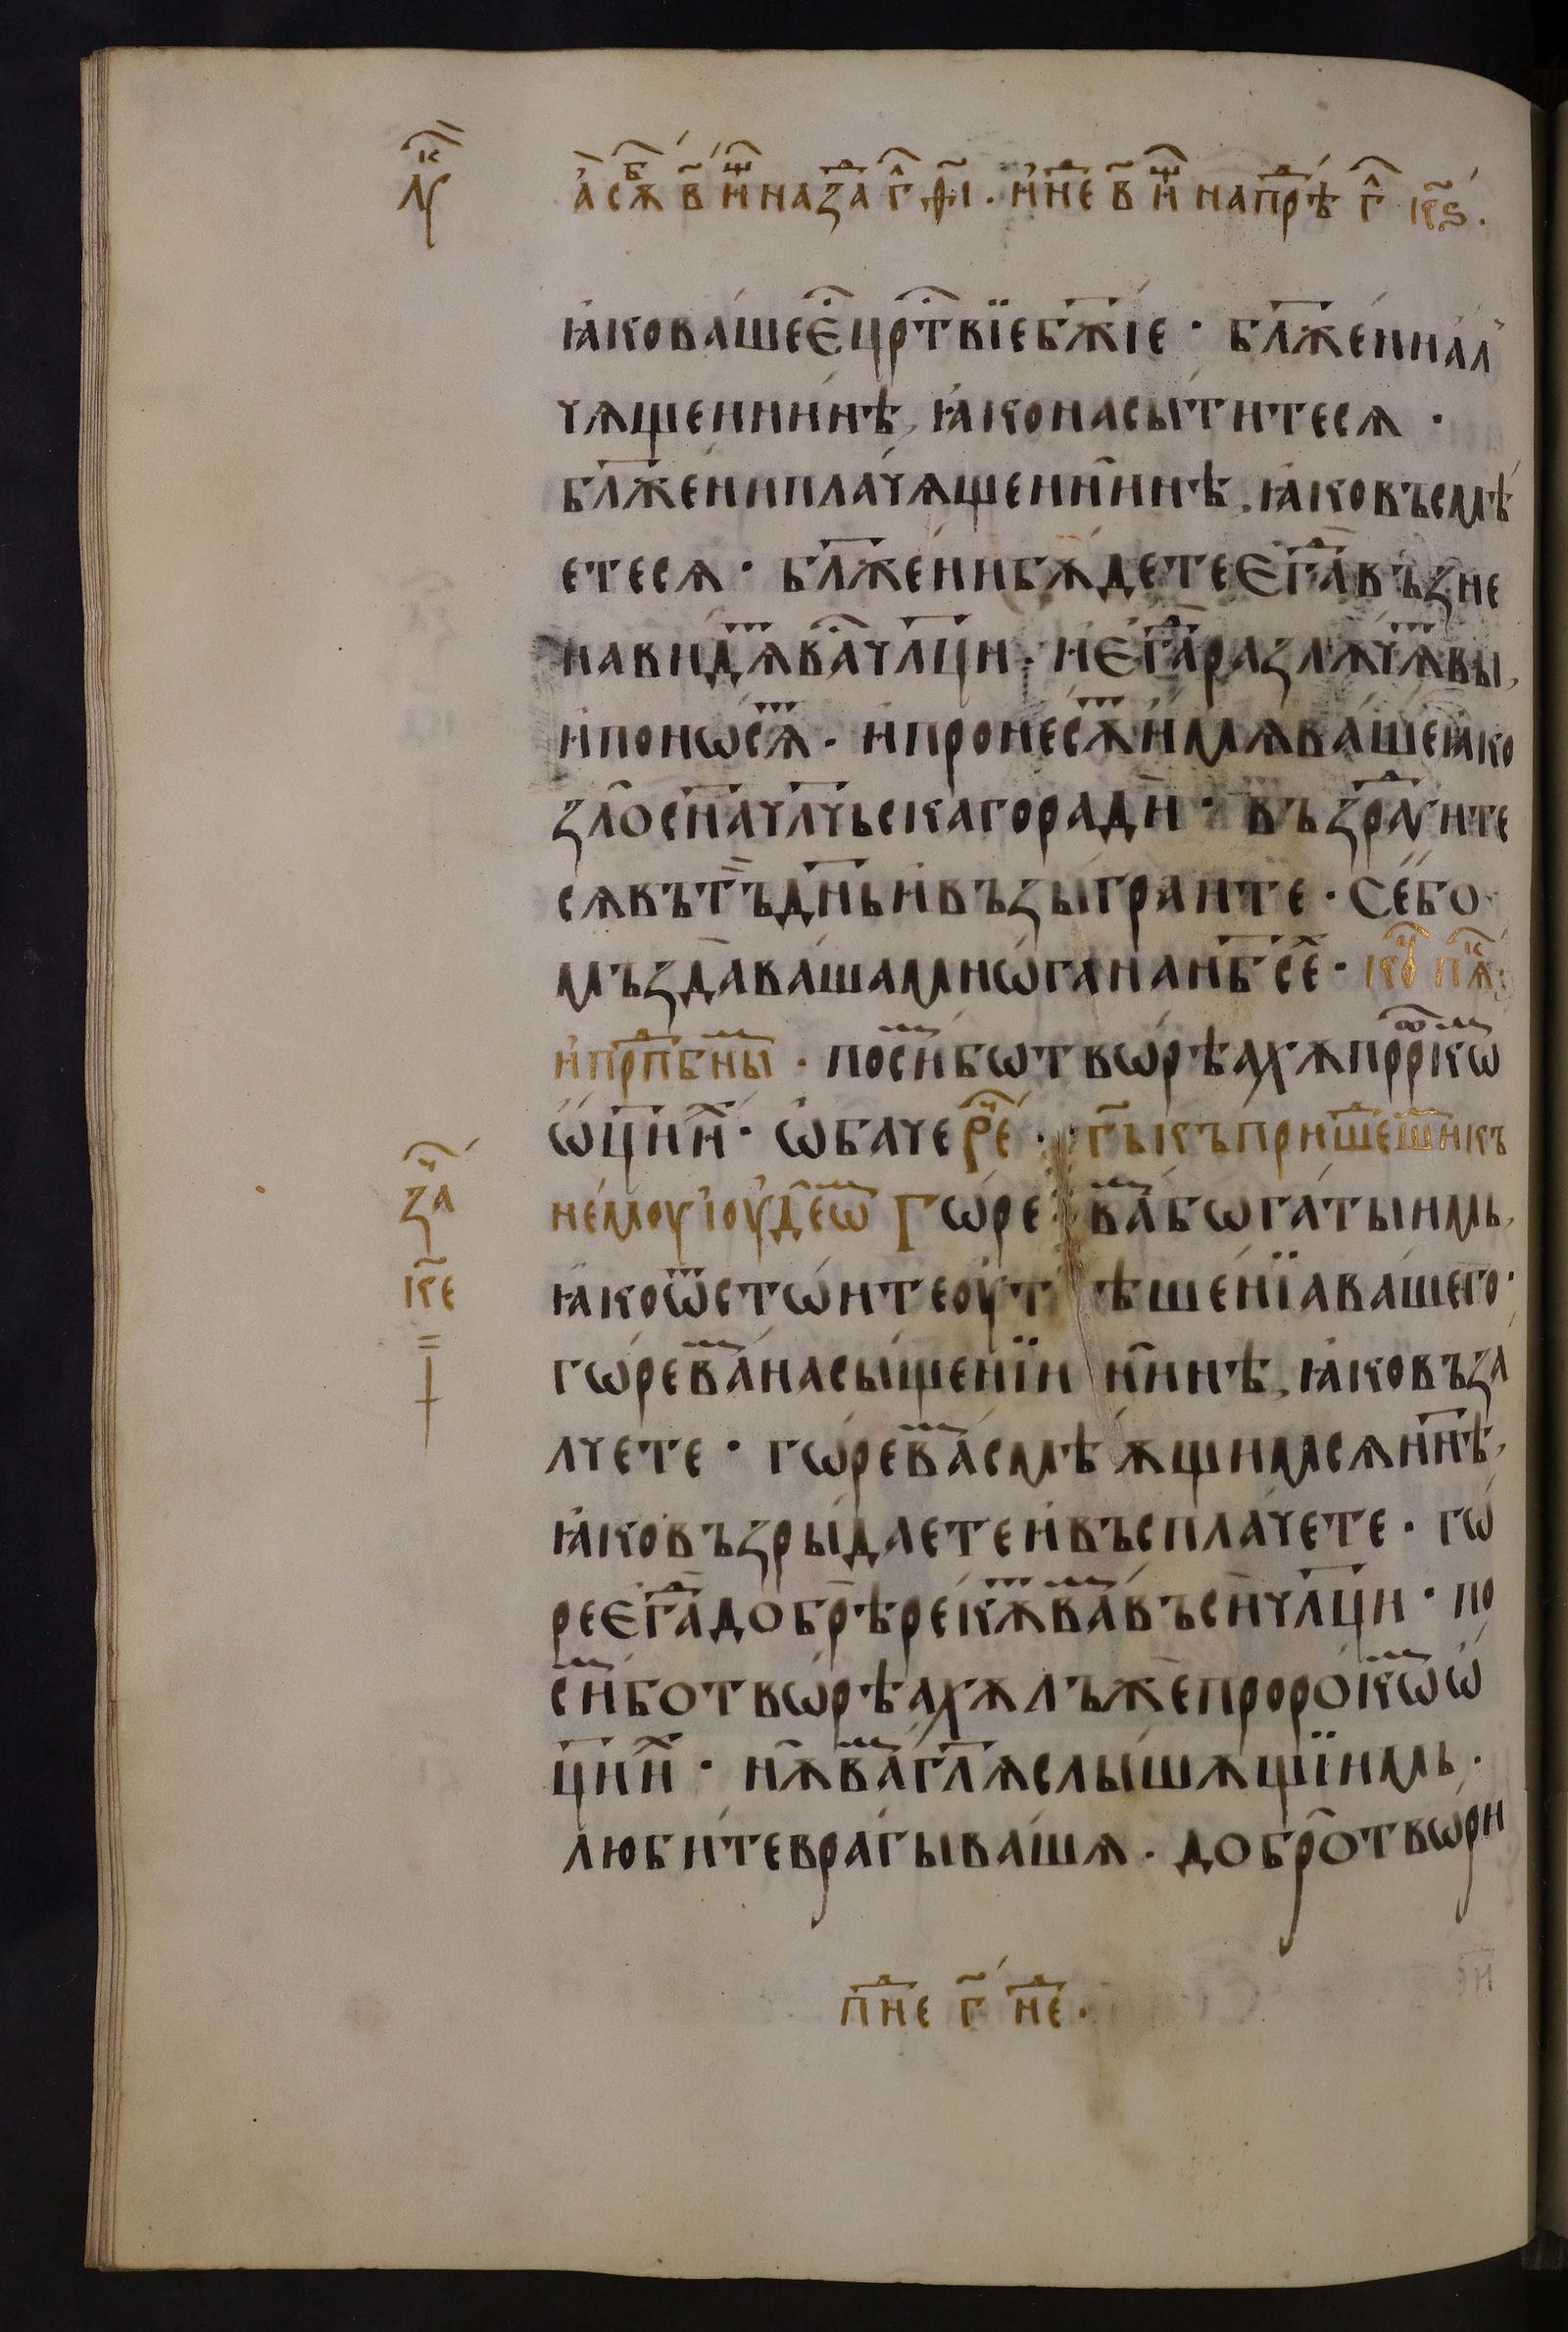 л꙯ꙋ
а҆ сѫⷠ҇ в҃ и҆ⷳ҇ на заⷣ г҃ ф҃і . и҆ неⷣ в҃ и҆ⷳ҇ на прѣⷣ г҃ к҃ѕ .
ꙗ҆ко ва́ше є҆ црⷭ҇твїе бж҃їе · бл҃же́ни а҆л
чѧщеи ни́нѣ, ꙗ҆ко насы́титесѧ ·
бл҃же́ни пла́чѧщеи ни́нѣ, ꙗ҆ко въсмѣ
етесѧ · бл҃же́ни бѫдете є҆гдⷣа възне
навидѧⷮ ва чл҃ци · и҆ є҆гдⷣа разлѫчѧⷮ вы,
и҆ поно́сѧⷮ · и҆ пронесѫⷮ и҆мѧ ва́ше ꙗ҆ко
зло̀ сн҃а чл҃чьскаго ради · въз̾раⷣꙋите
сѧ въ тъ дн҃ь и҆ възы́граите · се́ бо
мъзда̀ ва́ша мнѡ́га на нб҃се · кѡⷰ҇ пѧⷦ҇
и҆ прпⷣбныⷨ · по си́ⷨ бѡ твѡ́рѣахѫ прⷪ҇рⷪкѡⷨ
ѡ҆ц҃и иⷯ · ѡ҆баче реⷱ҇ · г҃ь къ пришеⷣшиⷨ къ
не́моу і҆оуде́ѡⷨ Гѡ́ре ваⷨ бѡга́тыимь,
заⷱ҇
ꙗ҆ко ѿстѡ́ите оу҆тѣше́нїа ва́шего ·
к҃е
гѡ́ре ваⷨ насы́щенїи ни́нѣ, ꙗ҆ко въза
лчете · гѡ́ре ваⷨ смѣѫщимсѧ нн҃ѣ,
ꙗ҆ко възры́даете и҆ въсплачете · гѡ́
ре є҆гдⷣа добрѣ рекѫⷮ ваⷨ въси чл҃ци · по
си́ⷨ бо твѡ́рѣахѫ лъже прорѡ́кѡⷨ ѡ҆
ц҃и иⷯ · нѫ̀ ваⷨ гл҃ѧ слы́шѧщїимь ·
люби́те врагы̀ ва́шѧ · добро̀ твѡ́ри
пⷩ҇е г҃ неⷣ ·